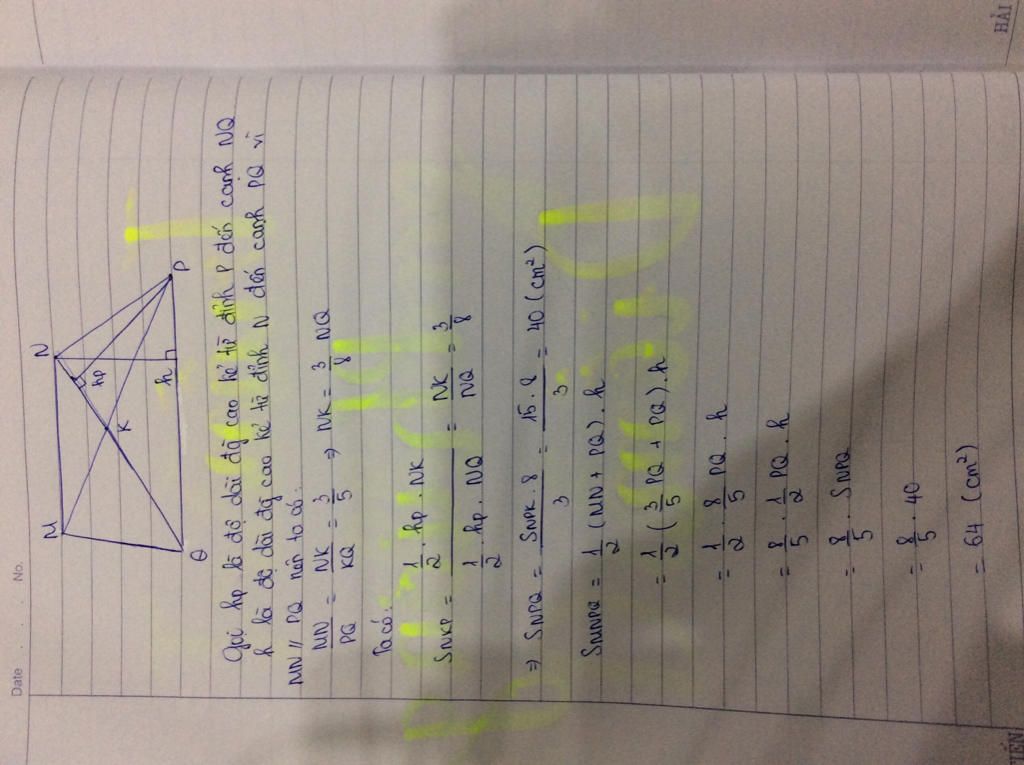 Date . . No.
M
N
hp
K
h
P
Q
Gọi hp là độ dài đg cao kẻ từ đỉnh P đến cạnh NQ
h là độ dài đg cao kẻ từ đỉnh N đến cạnh PQ vì
MN // PQ nên ta có:
MN/PQ = NK/KQ = 3/5 ⇒ NK = 3/8 NQ
Ta có:
SNKP = (1/2 . hp . NK)/(1/2 . hp . NQ) = NK/NQ = 3/8
⇒ SNPQ = (SNPK . 8)/3 = (15 . 8)/3 = 40 (cm²)
SMNPQ = 1/2 (MN + PQ) . h
= 1/2 (3/5 PQ + PQ) . h
= 1/2 . 8/5 PQ . h
= 8/5 . 1/2 PQ . h
= 8/5 . SNPQ
= 8/5 . 40
= 64 (cm²)
HẢI
TIẾN